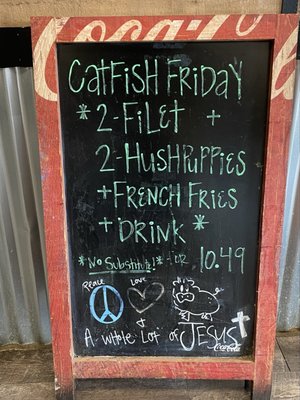 Coca-Cola
Catfish Friday
*2-Filet +
2-Hushpuppies
+French Fries
+Drink*
*No Substitute!* 10.49
Peace Love
&
A whole Lot of JESUS